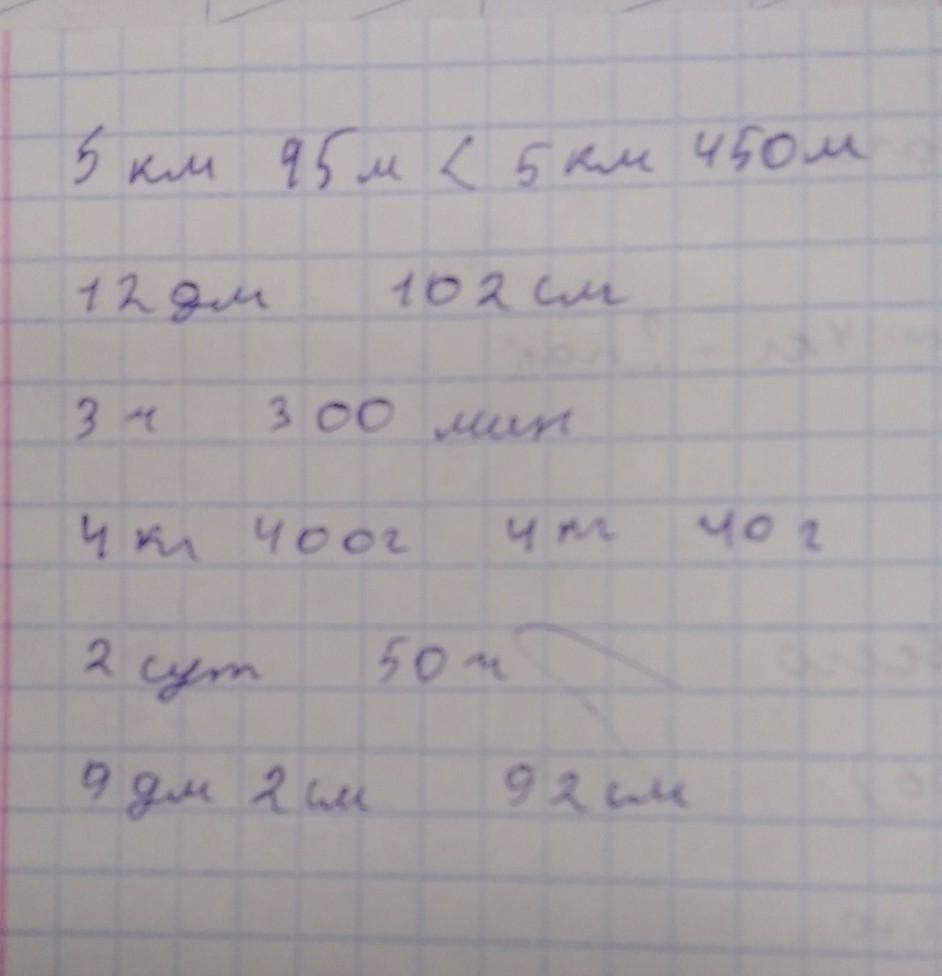 5 км 95 м < 5 км 450 м
12 дм 102 см
3 ч 300 мин
4 кг 400 г 4 кг 40 г
2 сут 50 ч
9 дм 2 см 92 см